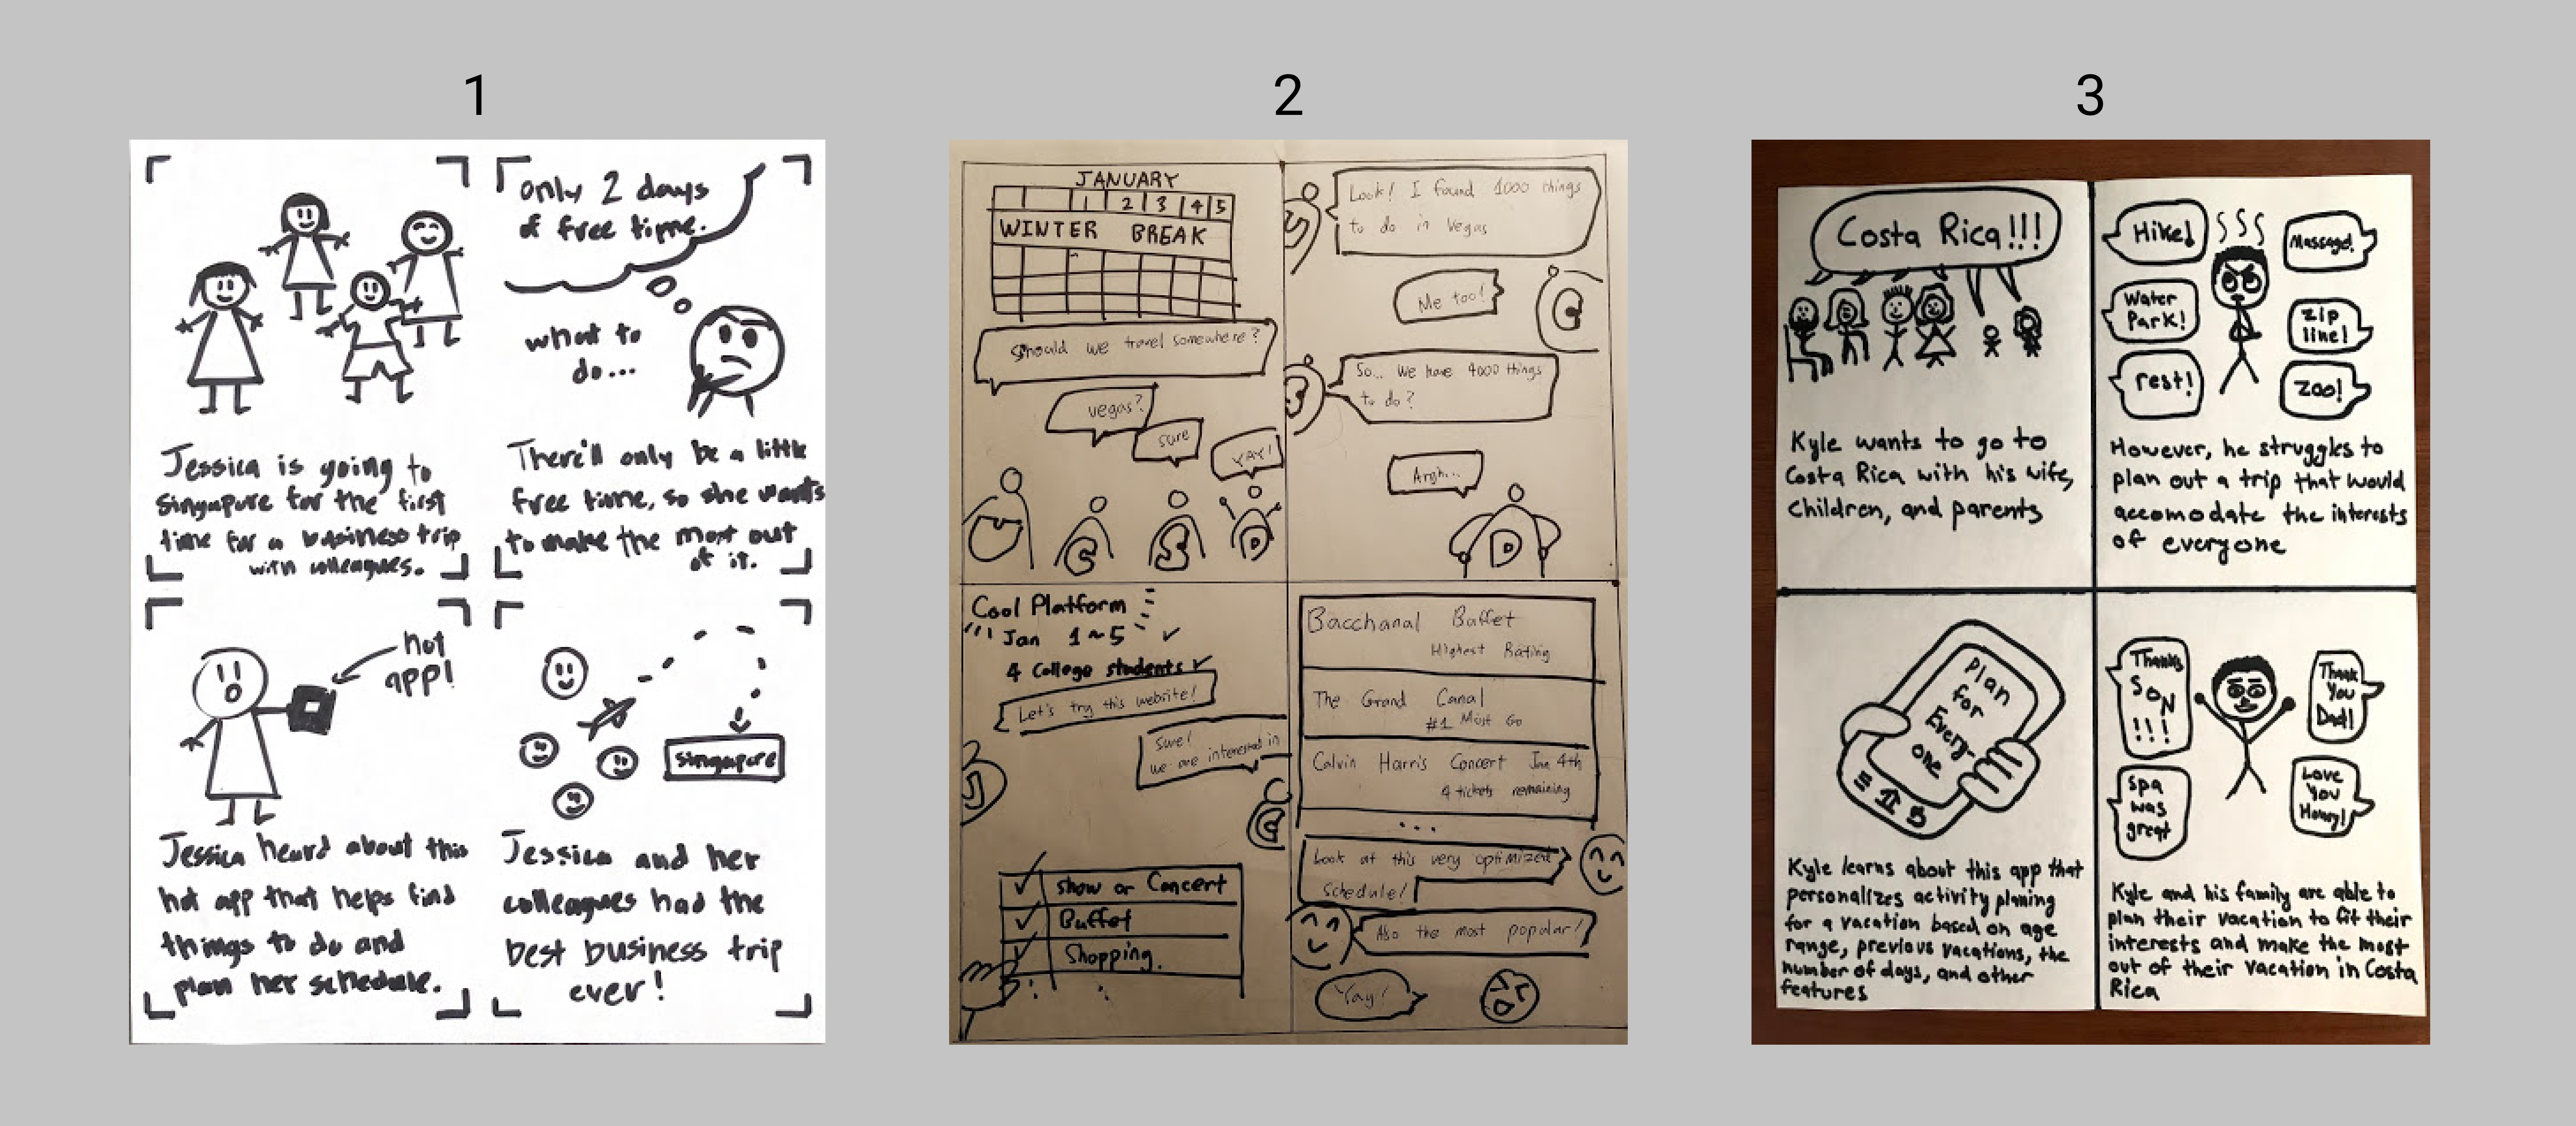 1
only 2 days
of free time.
what to
do...
Jessica is going to
Singapore for the first
time for a business trip
with colleagues.
There'll only be a little
free time, so she wants
to make the most out
of it.
hot
app!
Singapore
Jessica heard about this
hot app that helps find
things to do and
plan her schedule.
Jessica and her
colleagues had the
best business trip
ever!
2
JANUARY
1 2 3 4 5
WINTER BREAK
Should we travel somewhere?
Vegas?
sure
YAY!
C
S
D
Look! I found 1000 things
to do in Vegas
Me too!
C
So... We have 4000 things
to do?
Argh...
D
Cool Platform
Jan 1~5 ✓
4 College students ✓
Let's try this website!
Sure!
we are interested in
C
✓ Show or Concert
✓ Buffet
✓ Shopping.
Bacchanal Buffet
Highest Rating
The Grand Canal
#1 Must Go
Calvin Harris Concert Jan 4th
4 tickets remaining
...
Look at this very optimized
Schedule!
Also the most popular!
Yay!
3
Costa Rica!!!
Kyle wants to go to
Costa Rica with his wife,
Children, and parents
Hike!
Massage!
Water
Park!
Zip
line!
rest!
Zoo!
However, he struggles to
plan out a trip that would
accomodate the interests
of everyone
Plan
for
Every-
one
Kyle learns about this app that
personalizes activity planing
for a vacation based on age
range, previous vacations, the
number of days, and other
features
Thanks
SON
!!!
Thank
You
Dad!
Spa
was
great
Love
You
Honey!
Kyle and his family are able to
plan their vacation to fit their
interests and make the most
out of their vacation in Costa
Rica